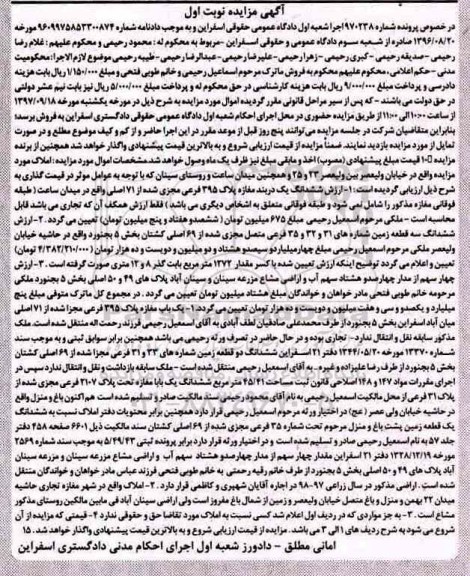 آگهی مزایده نوبت اول
در خصوص پرونده شماره ۹۷۰۲۳۸ اجرا شعبه اول دادگاه عمومی حقوقی اسفراین و به موجب دادنامه شماره ۹۶۰۹۹۷۵۸۵۳۳۰۰۸۷۴ مورخه
۱۳۹۶/۰۸/۲۰ صادره از شعبه سوم دادگاه عمومی و حقوقی اسفراین -مربوط به محکوم له : محمود رحیمی و محکوم علیهم : غلام رضا
رحیمی -صدیقه رحیمی -کبری رحیمی -زهرا رحیمی -علیرضا رحیمی -عبدالرضا رحیمی -طیبه رحیمی موضوع لازم الاجرا:محکومیت
مدنی -حکم اعلامی ، محکوم علیهم محکوم به فروش ماترک مرحوم اسماعیل رحیمی و خانم طوبی فتحی و مبلغ ۱/۱۵۰/۰۰۰ ریال بابت هزینه
دادرسی و پرداخت مبلغ ۹/۰۰۰/۰۰۰ ریال بابت هزینه کارشناسی در حق محکوم له و پرداخت مبلغ ۵/۰۰۰/۰۰۰ ریال نیز بابت نیم عشر دولتی
در حق دولت می باشند - که پس از سیر مراحل قانونی مقرر گردیده اموال مورد مزایده به شرح ذیل در مورخه یکشنبه مورخه ۱۳۹۷/۰۹/۱۸
از ساعت ۱۰:۰۰ الی ۱۱:۰۰ از طریق مزایده حضوری در محل اجرای احکام شعبه اول دادگاه عمومی حقوقی دادگستری اسفراین به فروش برسد؛
بنابراین متقاضیان شرکت در جلسه مزایده می توانند پنج روز قبل از موعد مقرر در این اجرا حاضر و از کم و کیف موضوع مطلع و در صورت
تمایل از مورد مزایده بازدید نمایند. ضمناً مزایده از قیمت ارزیابی شروع و به بالاترین قیمت پیشنهادی واگذار خواهد شد همچنین از برنده
مزایده ۱۰٪ قیمت مبلغ پیشنهادی (مصوب) اخذ و مابقی مبلغ نیز ظرف یک ماه وصول خواهد شد.مشخصات اموال مورد مزایده : املاک مورد
مزایده واقع در خیابان ولیعصر بین ولیعصر ۲۳ و ۲۵ و همچنین میدان ساعت و روستای سینان که با توجه به عوامل موثر در قیمت گذاری به
شرح ذیل ارزیابی گردیده است: ۱- ارزش ششدانگ یک دربند مغازه پلاک ۳۹۵ فرعی مجزی شده از ۷۱ اصلی واقع در میدان ساعت ( طبقه
فوقانی مغازه مذکور را شامل نمی شود و طبقه فوقانی متعلق به اشخاص دیگری می باشد ) فقط ارزش همکف آن که تجاری می باشد قابل
محاسبه است – ملکی مرحوم اسمعیل رحیمی مبلغ ۶۷۵ میلیون تومان ( ششصدو هفتاد و پنج میلیون تومان) تعیین می گردد .۲- ارزش
ششدانگ سه قطعه زمین شماره های ۳۱ و ۳۲ و ۳۵ فرعی متصل مجزی شده از ۶۹ اصلی کشتان بخش ۵ بجنورد واقع در حاشیه خیابان
ولیعصر ملکی مرحوم اسمعیل رحیمی مبلغ چهارمیلیاردو سیصدو هشتاد و دو میلیون و دویست و ده هزار تومان (۴/۳۸۲/۲۱۰/۰۰۰ تومان)
تعیین و اعلام می گردد توضیح اینکه ارزش تعیین شده با کسر مقدار ۱۳۷۲ متر مربع بابت گذر ۸ و ۱۲ متری صورت گرفته است .۳- ارزش
چهار سهم از مدار چهارصدو هشتاد سهم آب و اراضی مشاع مزرعه سینان و سینان آباد پلاک های ۴۹ و ۵۰ اصلی بخش ۵ بجنورد ملکی
مرحومه خانم طوبی فتحی مادر خواهان و خواندگان مبلغ هشتاد میلیون تومان تعیین می گردد . در مجموع کل ماترک متوفی مبلغ پنج
میلیارد و یکصدو و سی و هفت میلیون و دویست و ده هزار تومان تعیین می گردد.۱- یک باب مغازه پلاک ۳۹۵ فرعی مجزا شده از ۷۱ اصلی
میان آباد اسفراین بخش ۵ بجنورد از طرف محمدعلی صادقیان لطف آبادی به آقای اسمعیل رحیمی فرزند رحمت اله منتقل شده است. ملک
مذکور سابقه نقل و انتقال ندارد-- تجاری بوده و در حال حاضر در تصرف ورثه رحیمی می باشد همچنین برابر سوابق ثبتی و به موجب سند
شماره ۱۳۳۷۰ مورخه ۱۳۴۴/۰۵/۲۰ دفتر ۲۱ اسفراین ششدانگ دو قطعه زمین شماره های ۳۳ و ۳۱ فرعی مجزا شده از ۶۹ اصلی کشتان
بخش ۵ بجنورد از طرف رضا علیزاده و غیره به آقای اسمعیل رحیمی منتقل شده است – ملک سابقه بازداشت و نقل و انتقال ندارد سپس در
اجرای مقررات مواد ۱۴۷ و ۱۴۸ اصلاحی قانون ثبت مساحت ۴۵/۴۱ متر مربع ششدانگ یک بابا مغازه تحت پلاک ۲۱۰۷ فرعی مجزی شده از
پلاک ۳۱ فرعی از محل مالکیت اسمعیل رحیمی به نام آقای محمود رحیمی سند مالکیت صادر و تسلیم شده است هم اکنون باغ و منزل واقع
در حاشیه خیابان ولی عصر (عج) در اختیار ورثه مرحوم اسمعیل رحیمی قرار دارد همچنین برابر محتویات دفتر املاک نسبت به ششدانگ
یک قطعه زمین پشت باغ و منزل مرحوم تحت شماره ۳۵ فرعی مجزی شده از ۶۹ اصلی کشتان سند مالکیت ذیل ۶۶۰۱ صفحه ۴۵۸ دفتر
جلد ۵۷ به نام اسمعیل رحیمی صادر و تسلیم شده است و در اختیار ورثه قرار دارد برابر پرونده ثبتی ۵/۴۹/۴۳ به موجب سند شماره ۲۵۶۹
مورخه ۱۳۲۸/۱۲/۱۹ دفتر ۲۱ اسفراین مقدار چهار سهم از مدار چهارصدو هشتاد سهم آب و اراضی مشاع مزرعه سینان و مزرعه سینان
آباد پلاک های ۴۹ و ۵۰ اصلی بخش ۵ بجنورد از طرف خانم رقیه رحمتی به خانم طوبی فتحی فرزند عباس مادر خواهان و خواندگان منتقل
شده است. اراضی مذکور در سال زراعی ۹۷-۹۸ در اجاره آقایان شهپری و کاظمی قرار دارد .۲- املاک واقع در شهر مغازه تجاری حاشیه
میدان ۲۲ بهمن و منزل و باغ متصل خیابان ولیعصر و زمین از شمال باغ مفروز است ولی اراضی سینان آباد فی مابین مالکین روستای مذکور
مشاع است .۳- به جز مواردی که در ردیف اول اعلام شد کسی نسبت به املاک مورد تقاضا حق و حقوقی ندارد ۴-قیمتی که مزایده از آن
شروع می شود به شرح ردیف های ۱ الی ۳ می باشد. مزایده از قیمت ارزیابی شروع و به بالاترین قیمت پیشنهادی واگذار خواهد شد. ۱۵
امانی مطلق - دادورز شعبه اول اجرای احکام مدنی دادگستری اسفراین